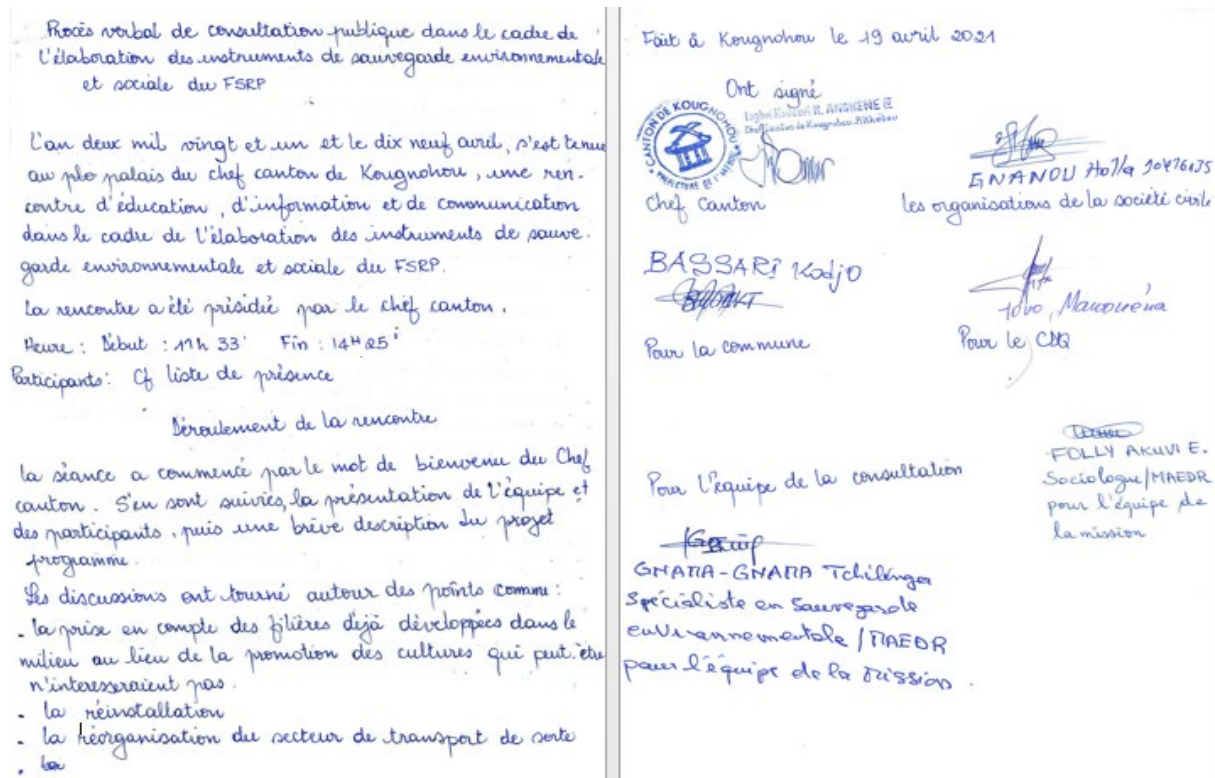 Procès verbal de consultation publique dans le cadre de
l'élaboration des instruments de sauvegarde environnementale
et sociale du FSRP
L'an deux mil vingt et un et le dix neuf avril, s'est tenue
au plo palais du chef canton de Kougnohou, une ren-
contre d'éducation, d'information et de communication
dans le cadre de l'élaboration des instruments de sauve-
garde environnementale et sociale du FSRP.
La rencontre a été présidée par le chef canton.
Heure : Début : 11h 33' Fin : 14H 25'
Participants : Cf liste de présence
Déroulement de la rencontre
La séance a commencé par le mot de bienvenu du Chef
canton. S'en sont suivies, la présentation de l'équipe et
des participants, puis une brève description du projet
programme.
Les discussions ont tourné autour des points comme :
- la prise en compte des filières déjà développées dans le
milieu au lieu de la promotion des cultures qui peut-être
n'interesseraient pas.
- la réinstallation
- la réorganisation du secteur de transport de sorte
- la
Fait à Kougnohou le 19 avril 2021
Ont signé
CANTON DE KOUGNOHOU
Chef Canton
GNANDU
les organisations de la société civile
BASSARI Kodjo
Pour la commune
Pour le CDQ
Pour l'équipe de la consultation
FOLLY AKUVI E.
Sociologue/MAEDR
pour l'équipe de
la mission
GNAMA-GNAMA Tchilénga
Spécialiste en Sauvegarde
environnementale/MAEDR
pour l'équipe de la Mission.